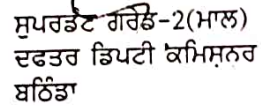 ਸੁਪਰਡੰਟ ਗਰੇਡ-2(ਮਾਲ)
ਦਫਤਰ ਡਿਪਟੀ ਕਮਿਸ਼ਨਰ
ਬਠਿੰਡਾ